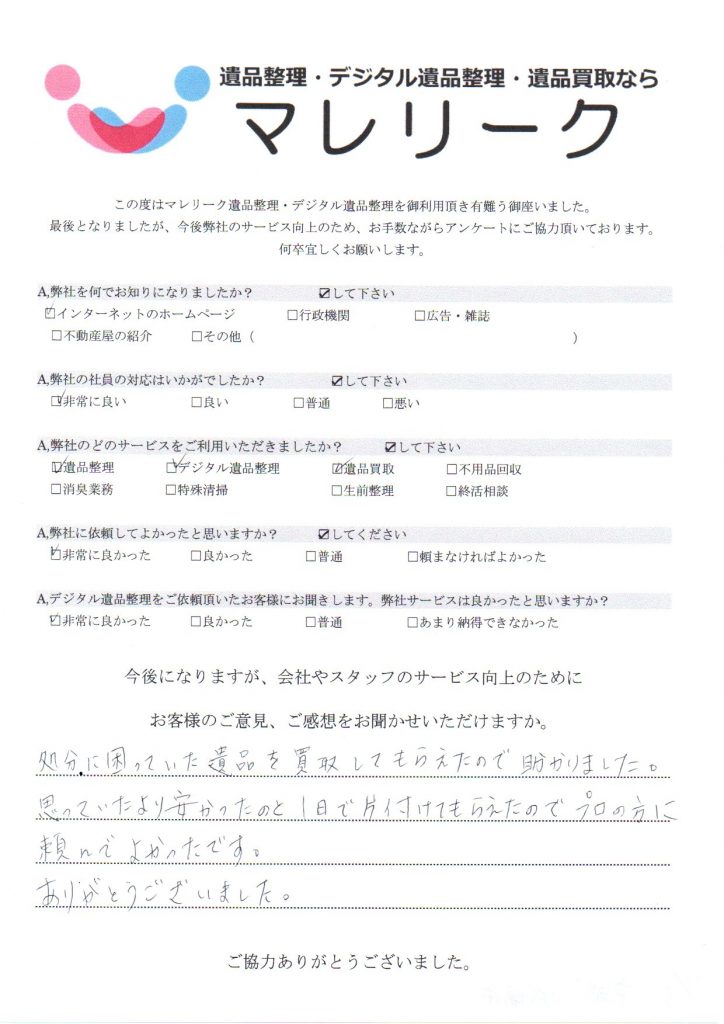 遺品整理・デジタル遺品整理・遺品買取なら
マレリーク
この度はマレリーク遺品整理・デジタル遺品整理を御利用頂き有難う御座いました。
最後となりましたが、今後弊社のサービス向上のため、お手数ながらアンケートにご協力頂いております。
何卒宜しくお願いします。
A,弊社を何でお知りになりましたか？ ☑して下さい
☑インターネットのホームページ □行政機関 □広告・雑誌
□不動産屋の紹介 □その他（ ）
A,弊社の社員の対応はいかがでしたか？ ☑して下さい
☑非常に良い □良い □普通 □悪い
A,弊社のどのサービスをご利用いただきましたか？ ☑して下さい
☑遺品整理 ☑デジタル遺品整理 ☑遺品買取 □不用品回収
□消臭業務 □特殊清掃 □生前整理 □終活相談
A,弊社に依頼してよかったと思いますか？ ☑してください
☑非常に良かった □良かった □普通 □頼まなければよかった
A,デジタル遺品整理をご依頼頂いたお客様にお聞きします。弊社サービスは良かったと思いますか？
☑非常に良かった □良かった □普通 □あまり納得できなかった
今後になりますが、会社やスタッフのサービス向上のために
お客様のご意見、ご感想をお聞かせいただけますか。
処分に困っていた遺品を買取してもらえたので助かりました。
思っていたより安かったのと1日で片付けてもらえたのでプロの方に
頼んでよかったです。
ありがとうございました。
ご協力ありがとうございました。